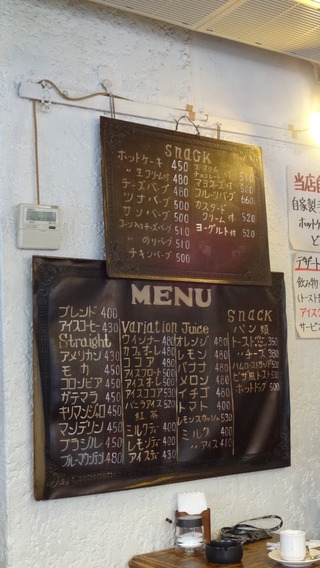 Snack
ホットケーキ 450
〃 生クリーム付 480
チーズバーグ 480
ツナバーグ 500
ワンバーグ 500
コーン入りチーズバーグ 510
〃 のりバーグ 510
チキンバーグ 500
生クリーム
チョコレート付 510
マヨネーズ付 480
フルーツバーグ 660
カスタード
クリーム付 520
ヨーグルト付 520
MENU
ブレンド 400
アイスコーヒー 430
Straight
アメリカン 430
モカ 450
コロンビア 450
ガテマラ 450
キリマンジャロ 450
マンデリン 450
ブラジル 450
ブルーマウンテン 480
Variation
ウインナー 480
カフェオーレ 480
ココア 480
アイスフロート 500
アイスオーレ 500
アイスココア 530
バニラアイス 520
紅茶
ミルクティー 400
レモンティー 400
アイスティー 430
Juice
オレンジ 480
レモン 480
バナナ 480
メロン 480
イチゴ 480
トマト 400
レモンスカッシュ 530
ミルク 400
〃 アイス 410
Snack
パン類
トースト 350
〃 チーズ 380
ハムエッグトースト 520
ピザ風トースト 530
ホットドッグ 500
当店自
自家製
ホットケ
デザート
飲み物
(トースト
アイスク
サービス